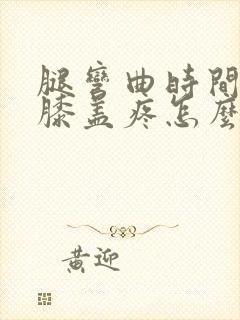 腿彎曲時間
膝盖疼怎麼
黄迎